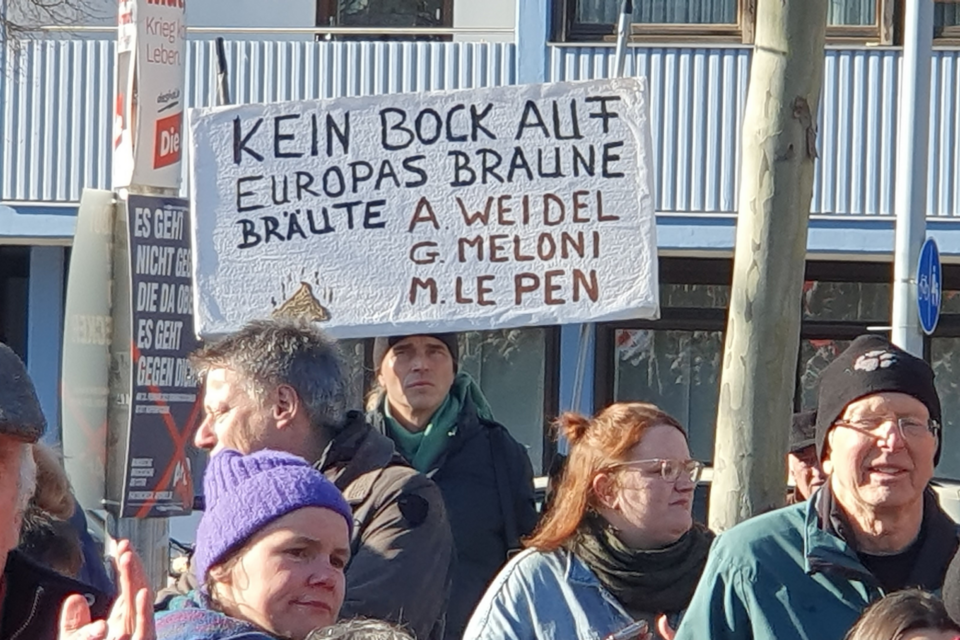 Krieg
Leben.
Die
KEIN BOCK AUF
EUROPAS BRAUNE
BRÄUTE A. WEIDEL
G. MELONI
M. LE PEN
ES GEHT
NICHT
DIE DA
ES GEHT
GEGEN